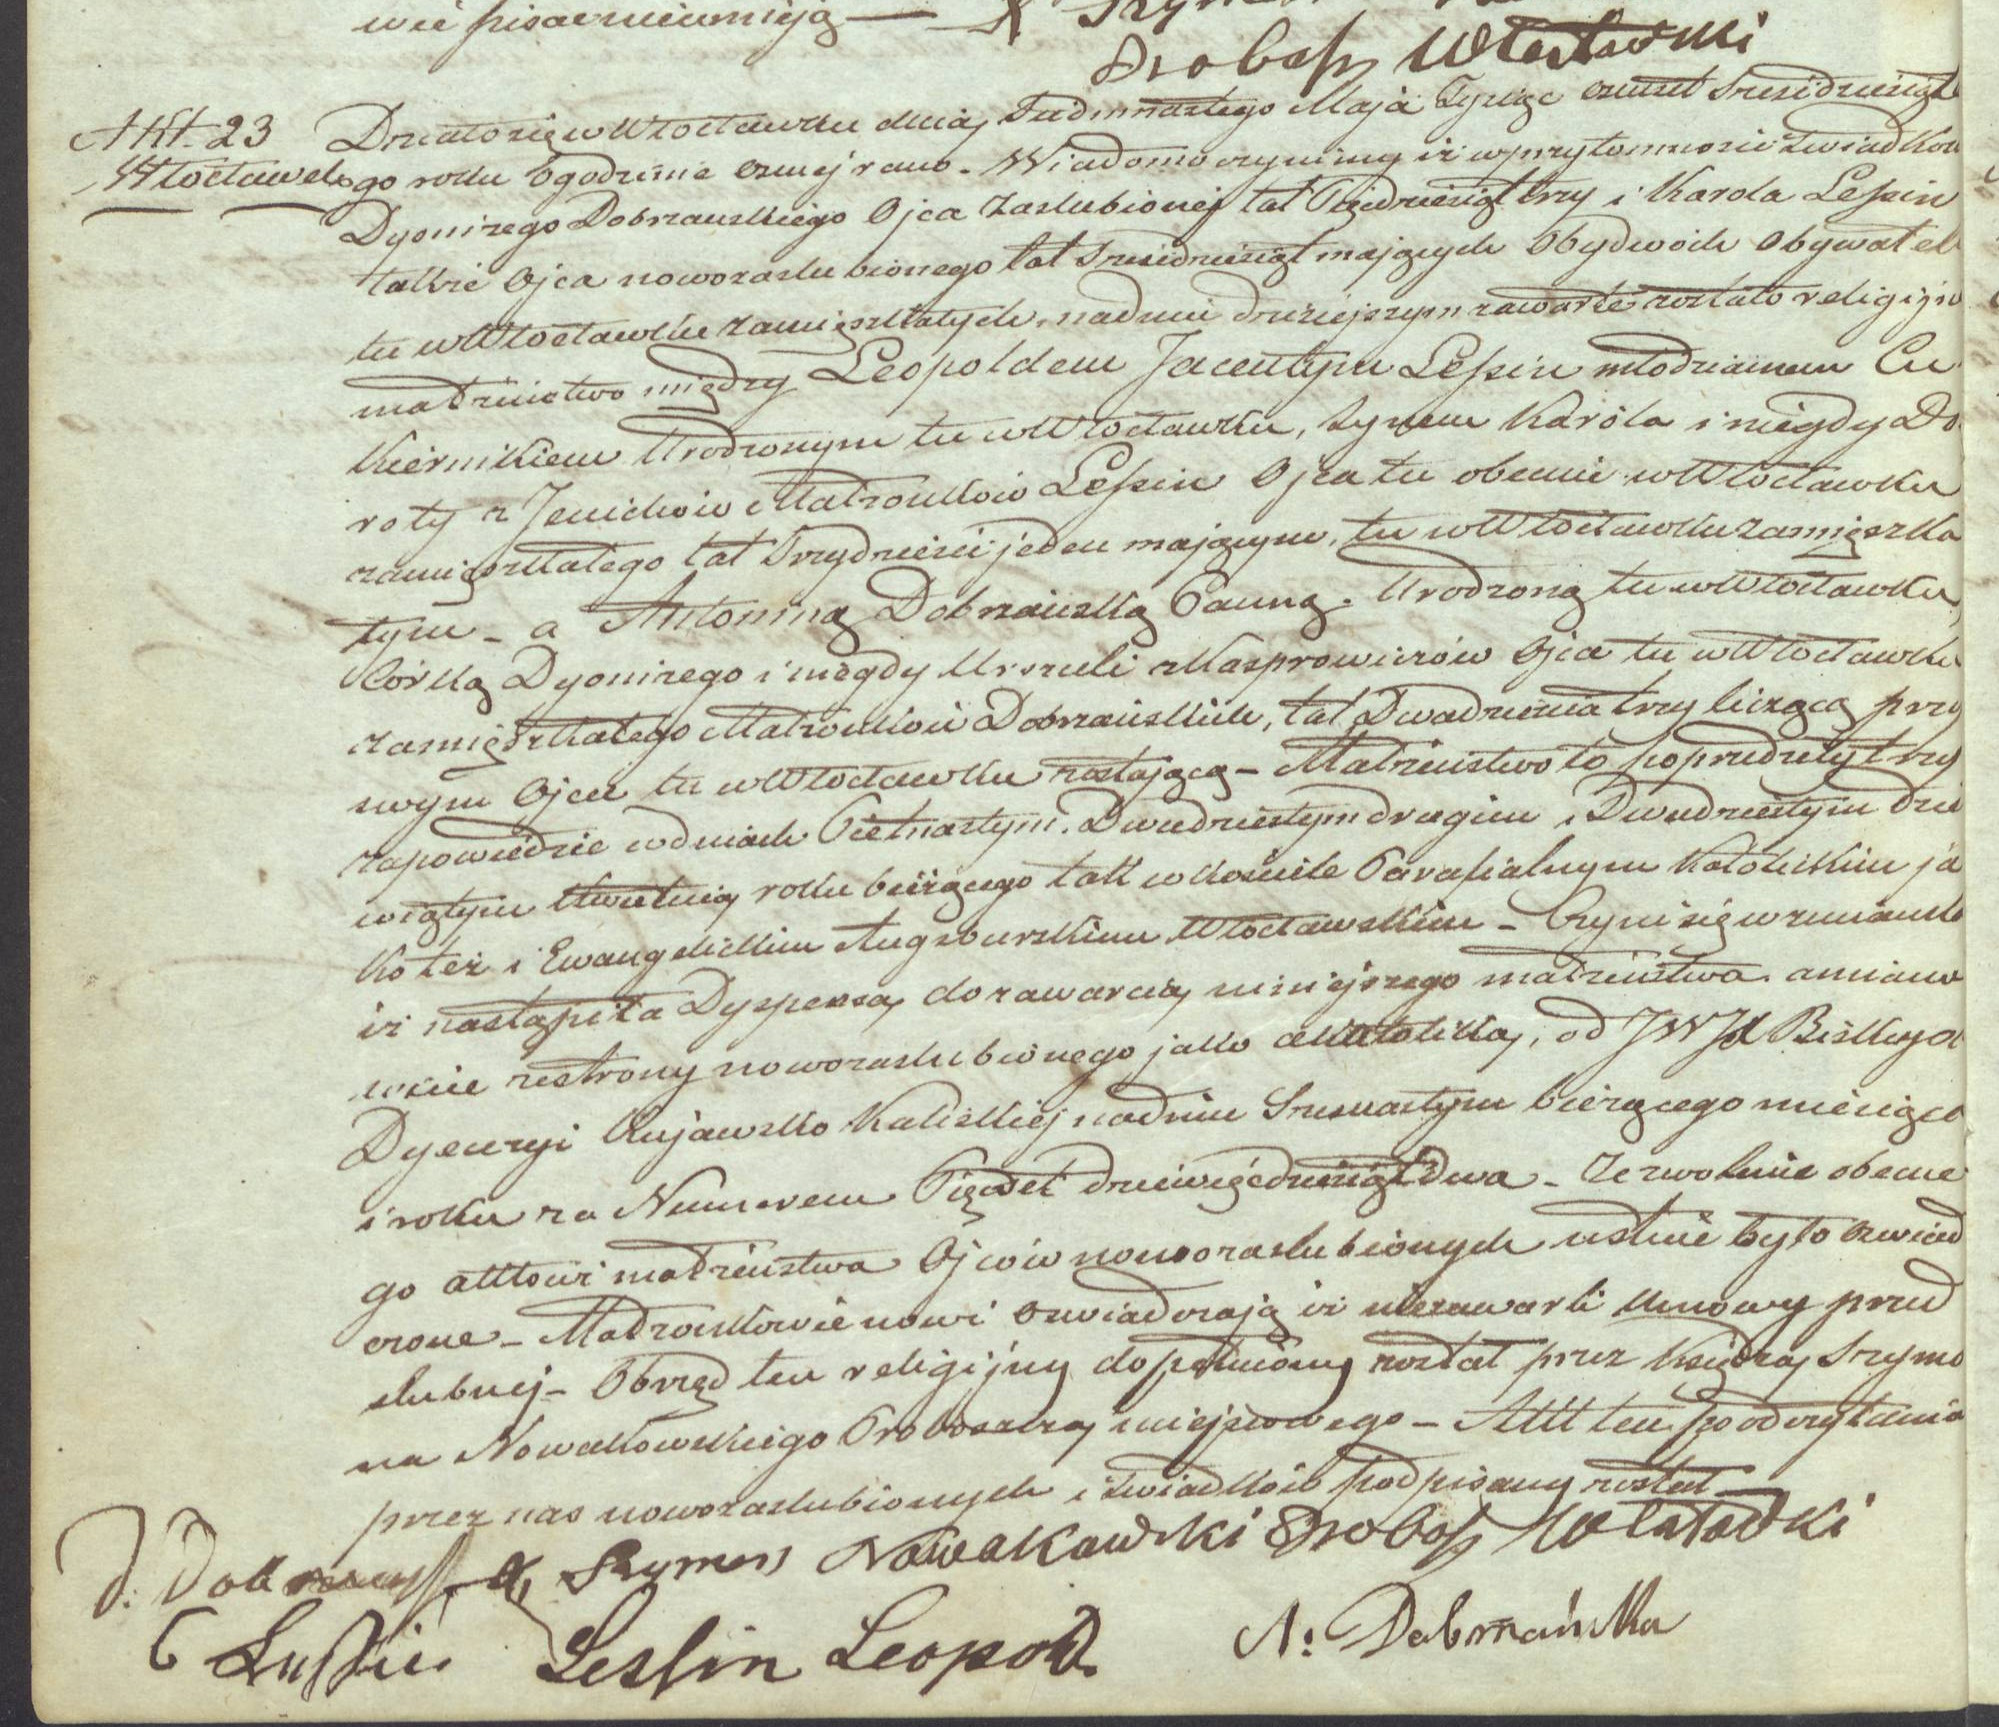 wie pisać nieumieją — X Szymon
Probosz Włocławski
Akt. 23 Działo się w Włocławku dnia, Siedmnastego Maja Tysiąc ośmset Sześćdziesiąte
Włocławek go roku o godzinie osmej rano. Wiadomo czynimy iż w przytomności Swiadków
Dyonizego Dobrzańskiego Ojca zaslubionej lat Pięćdziesiąt trzy i Karola Lessin
także Ojca nowozaslubionego lat Sześćdziesiąt mających Obydwóch Obywateli
tu w Włocławku zamięszkałych, nadniu dzisiejszym zawarte zostało religijne
małżeństwo między Leopoldem Jacentym Lessin młodzianem Cu
kiernikiem Urodzonym tu w Włocławku, Synem Karóla i niegdy Do
roty z Jenichów Małżonków Lessin Ojca tu obecnie w Włocławku
zamięszkałego lat Trzydzieści jeden mającym, tu w Włocławku zamięszka
łym – a Antoniną Dobrzańską Panną. Urodzoną tu w Włocławku,
Córką Dyonizego i niegdy Urszuli z Kasprowiczów Ojca tu w Włocławku
zamięszkałego Małżonków Dobrzańskich, lat Dwadzieścia trzy liczącą przy
swym Ojcu tu w Włocławku zostającą – Małżeństwo to poprzedziły trzy
zapowiedzie w dniach Piętnastym, Dwudziestym drugim i Dwudziestym dzie
wiątym Kwietnia, roku bieżącego tak w kościele Parafialnym Katolickim ja
ko też i Ewangelickim Augsburskim Włocławskim – Czyni się wzmianka
iż nastąpiła Dyspensa, do zawarcia, niniejszego małżeństwa. a miano
wicie ze strony nowozaslubionego jako akatolika, od JWJX Biskupa
Dyecezyi Kujawsko Kaliskiej nadniu Szesnastym bieżącego miesiąca
i roku za Numerem Pięćset dziewięćdziesiąt dwa – Zezwolenie obecne
go aktowi małżeństwa Ojców nowozaslubionych ustnie było oswiad
czone – Małżonkowie nowi oswiadczają iż niezawarli Umowy przed
slubnej – Obrzęd ten religijny dopełniony został przez Księdza, Szymo
na Nowakowskiego Proboszcza, miejscowego – Akt ten po odczytaniu
przez nas nowozaslubionych i Swiadków podpisany został –
D. Dobrzański X, Szymon Nowakowski Probosz Włocławski
C Lessin Leslin Leopold. A: Dobrzańska